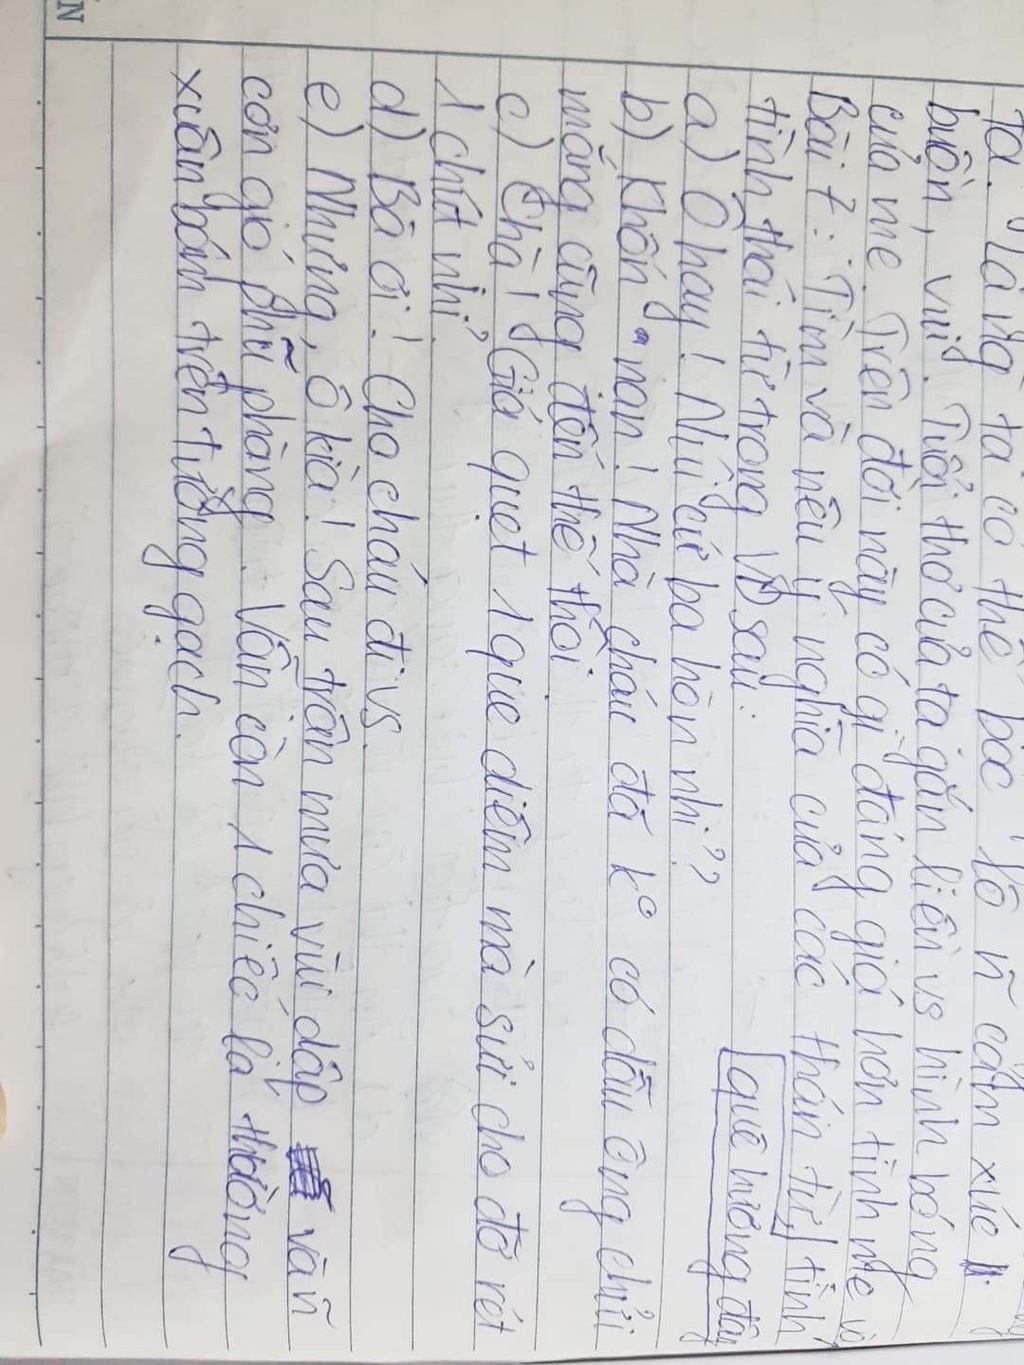 ta. Mà ng ta có thể bộc lộ n~ cảm xúc
buồn, vui. Tuổi thơ của ta gắn liền vs hình bóng
của mẹ. Trên đời này có gì đáng giá hơn tình mẹ và
Bài 7: Tìm và nêu ý nghĩa của các thán từ, tình
tình thái từ trong VD sau: quê hương đâu
a) Ô hay! Níu cứ ba hòn nhỉ??
b) Khốn nạn! Nhà cháu đã k° có dẫu ông chửi
mắng cũng đến thế thôi.
c) Chà! Giá quẹt 1 que diêm mà sưởi cho đỡ rét
1 chút nhỉ?
d) Bà ơi! Cho cháu đi vs.
e) Nhưng, ô kìa! Sau trận mưa vùi dập và n~
cơn gió phũ phàng. Vẫn còn 1 chiếc lá thường
xuân bánh trên tường gạch.
N